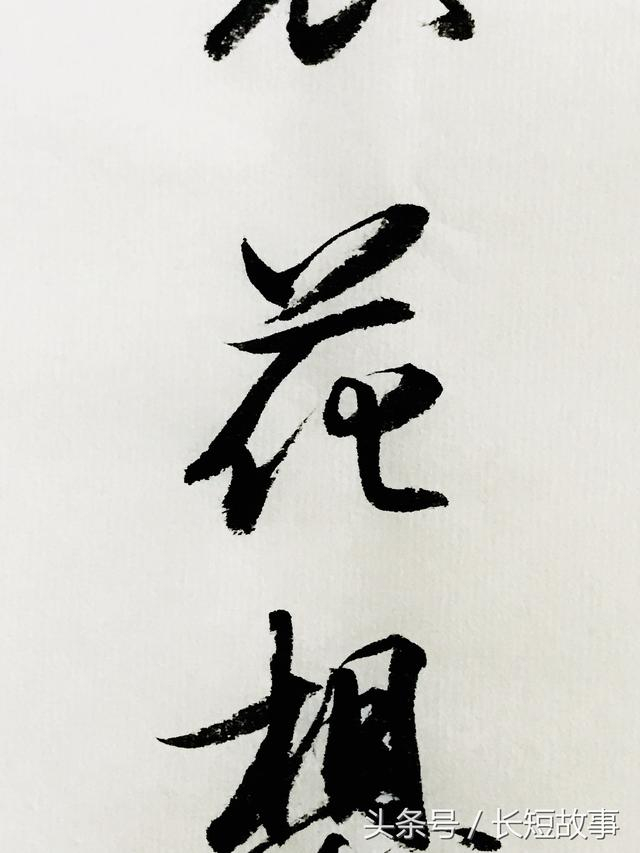 花
想
头条号 / 长短故事